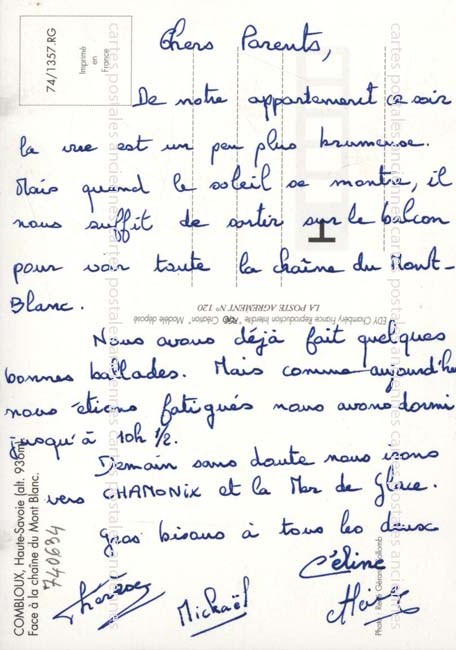 Chers Parents,
De notre appartement ce soir
la vue est un peu plus brumeuse.
Mais quand le soleil se montre, il
nous suffit de sortir sur le balcon
pour voir toute la chaîne du Mont-
Blanc.
Nous avons déjà fait quelques
bonnes ballades. Mais comme aujourd'hu
nous étions fatigués nous avons dormi
jusqu'à 10h 1/2.
Demain sans doute nous irons
vers CHAMONIX et la Mer de Glace.
Gros bisous à tous les deux
Céline
Thérèse
Mickaël
74/1357.RG
Imprimé
en
France
LA POSTE AGREMENT N° 120
EDY Chambéry France Reproduction Interdite "Création" Modèle déposé
COMBLOUX, Haute-Savoie (alt. 936m)
Face à la chaîne du Mont Blanc.
740634
Photo : René Gérard
cartes postales anciennes